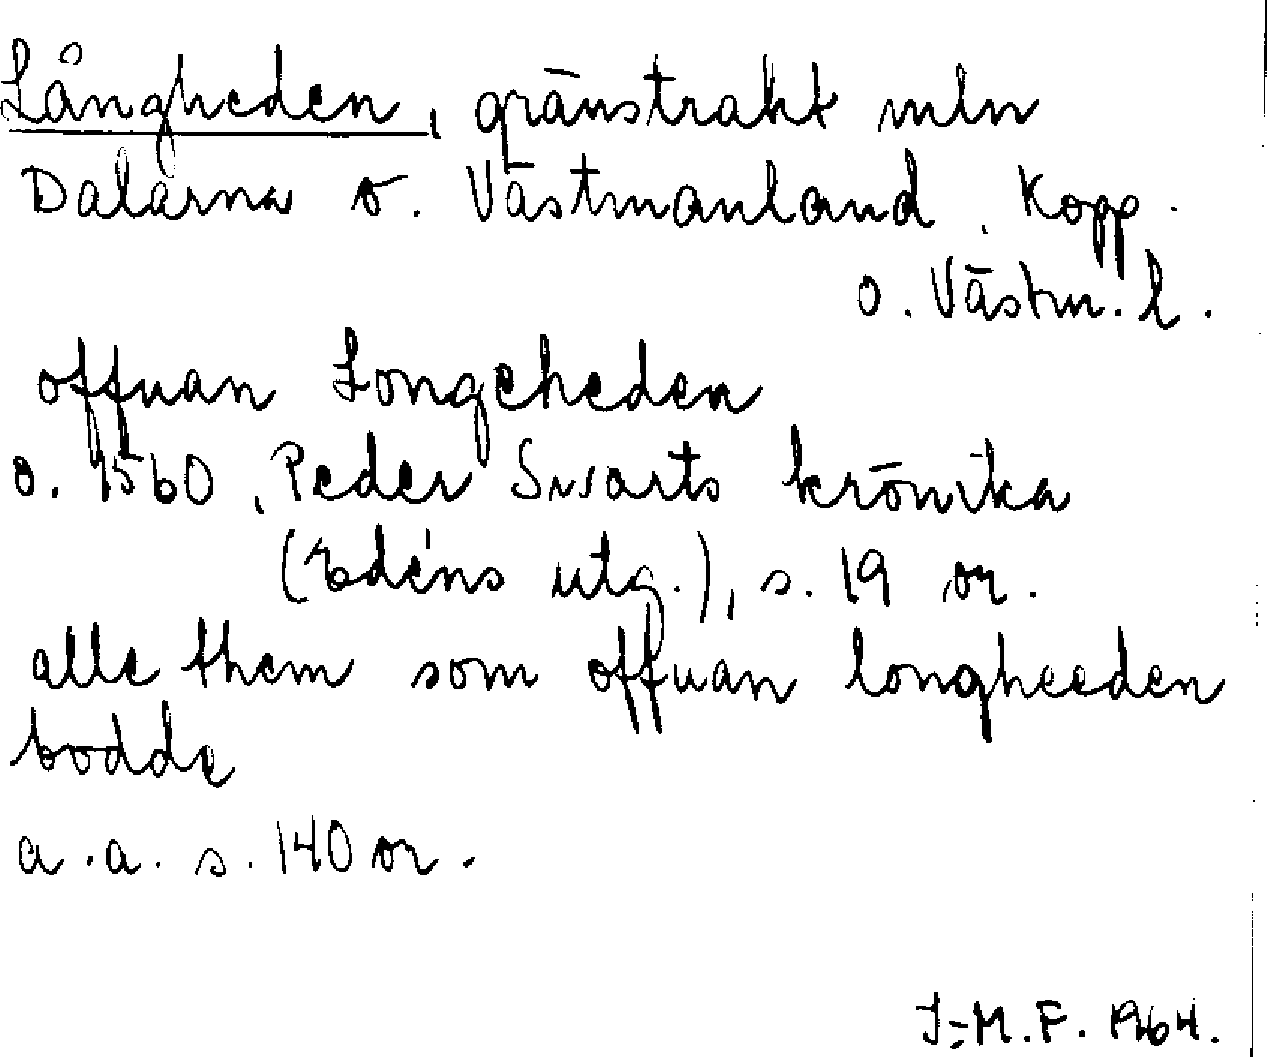 Långheden, gränstrakt mln
Dalarna o. Västmanland. Kopp.
o. Västm. l.
offuan Longeheden
o. 1560, Peder Swarts krönika
(Edéns utg.), s. 19 or.
alle them som offuan longheeden
bodde
a.a. s. 140 or.
J:M.F. 1964.